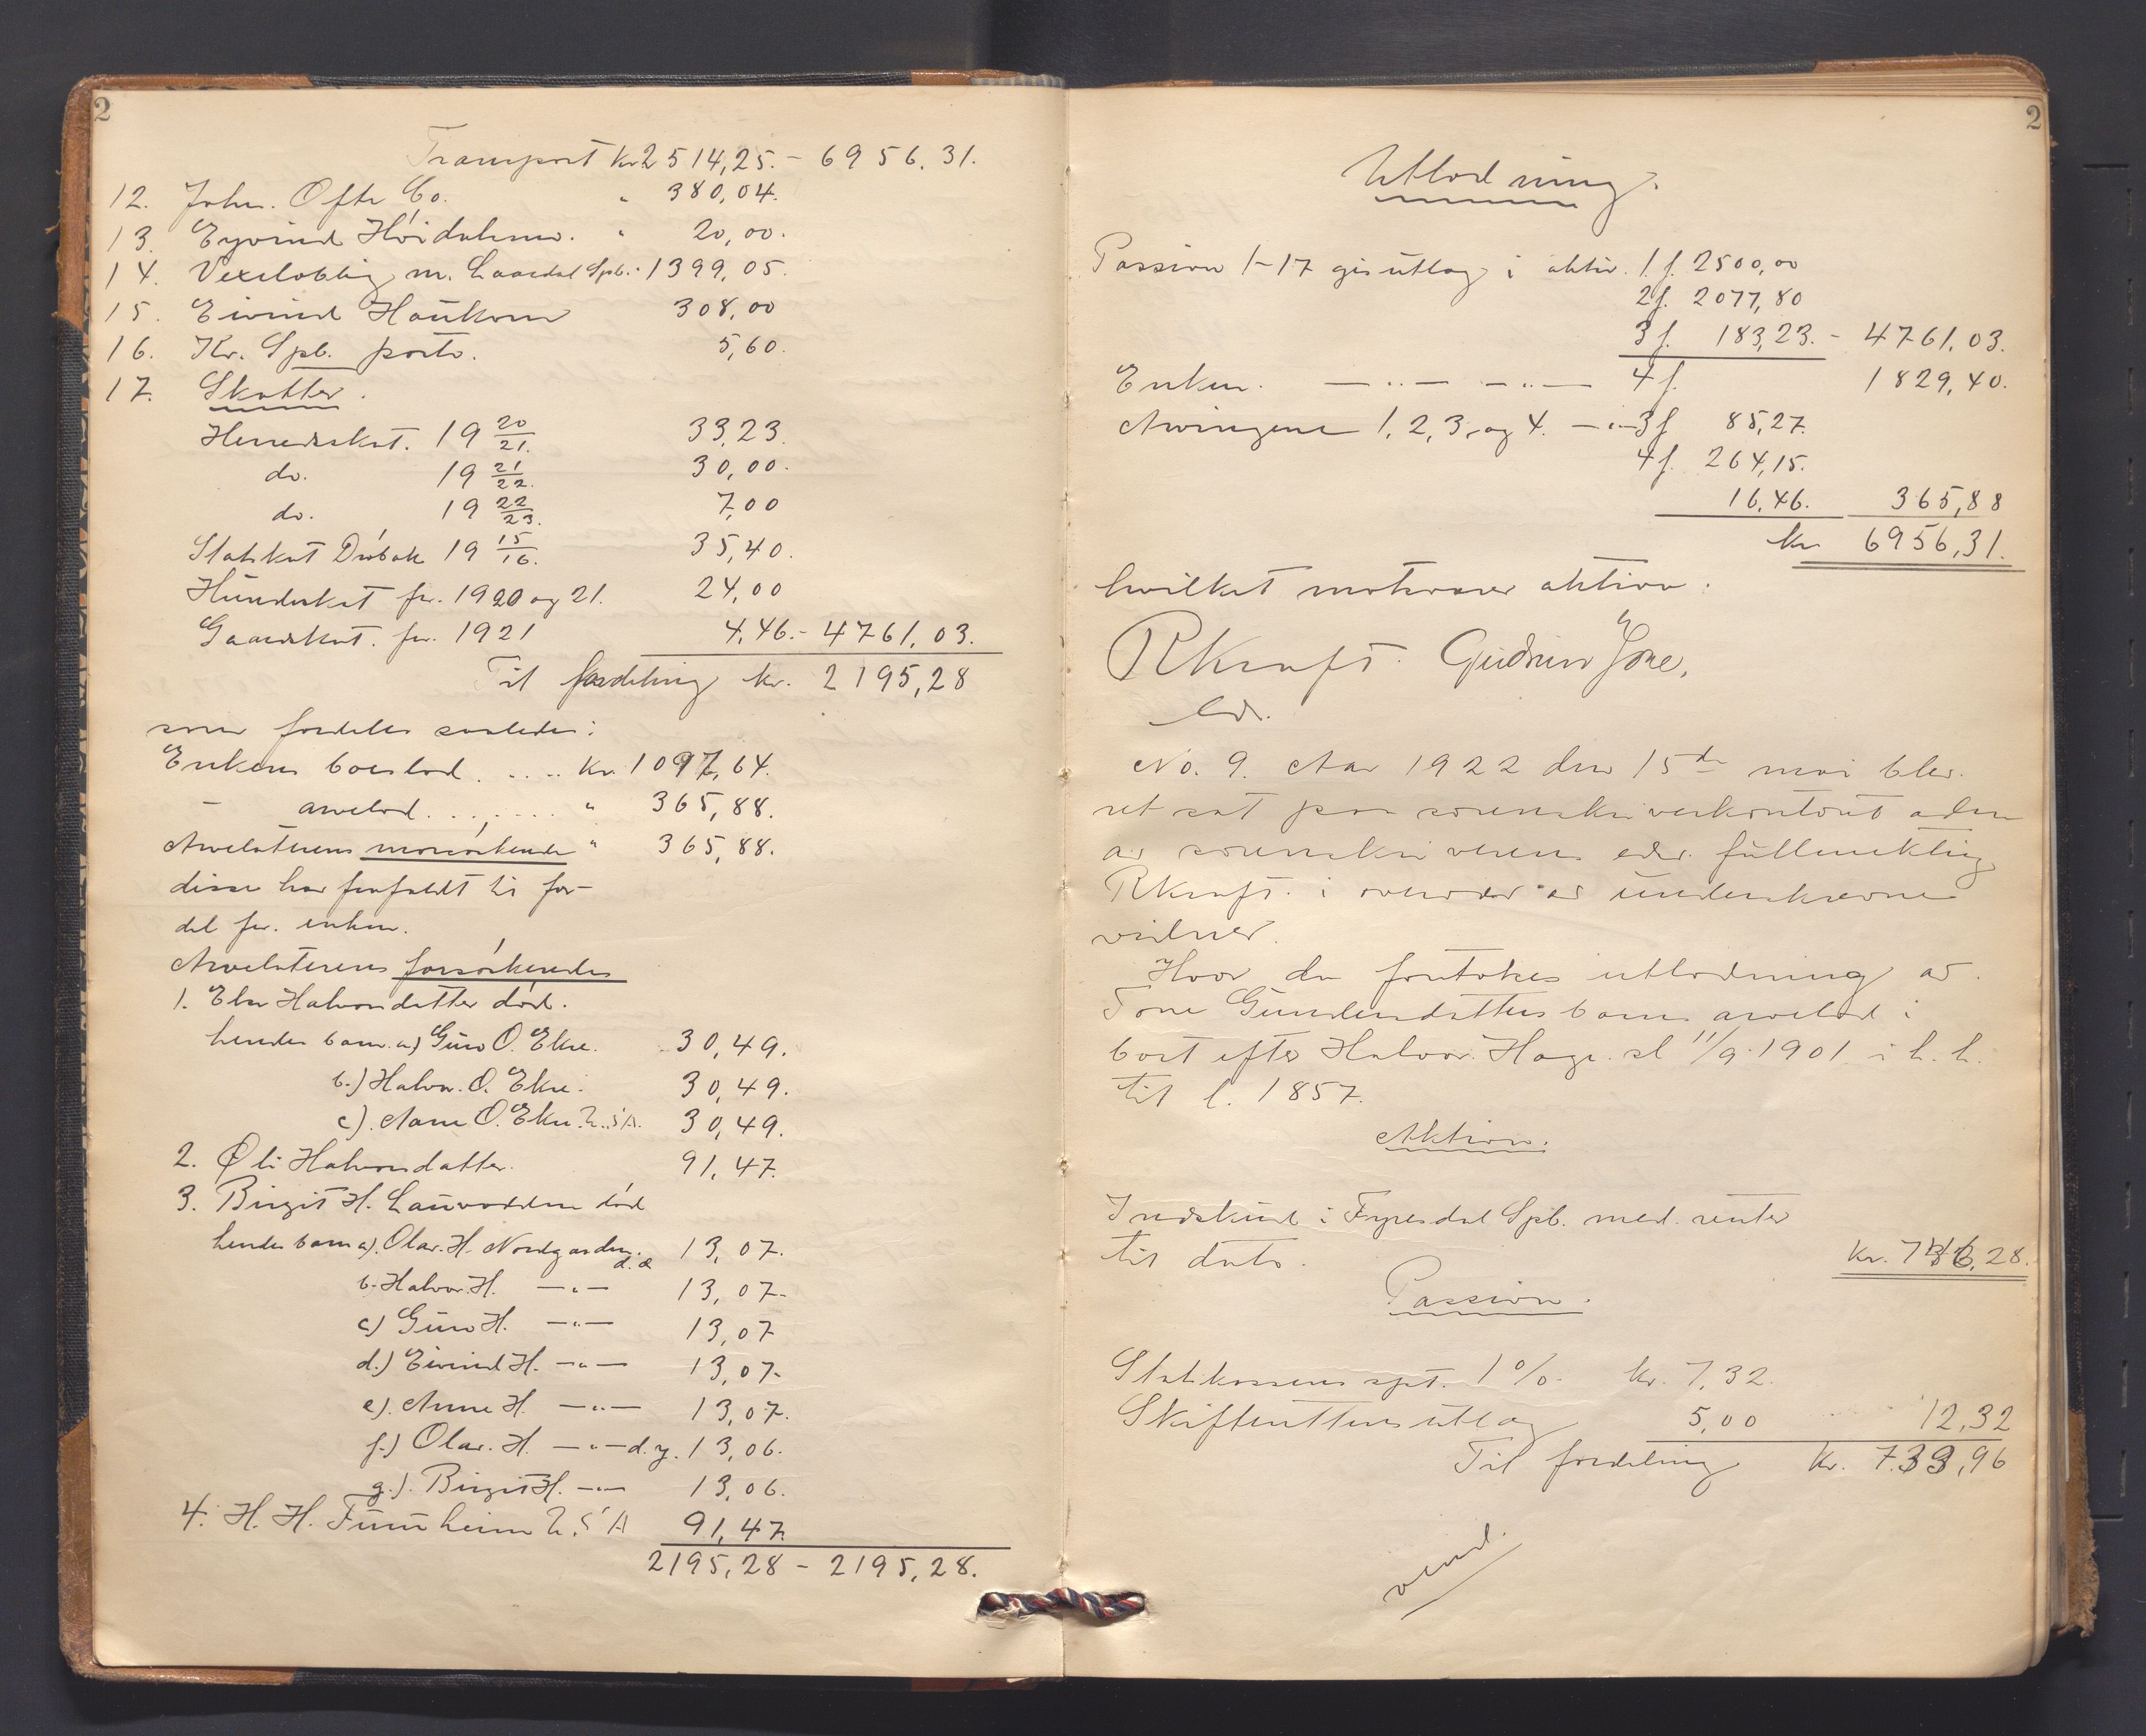 2
Transport kr 2514,25. - 6956.31.
12. John. Ofte Co. " 380,04.
13. Eyvind Høidahlmo. " 20,00.
14. Vexeloblig m. Laardal Spb. " 1399,05.
15. Eivind Haukom 308,00
16. Kr. Spb. porto. 5,60.
17. Skatter.
Herredskat. 19 20/21. 33,23.
do. 19 21/22. 30,00.
do. 19 22/23. 7,00
Statskat Drøbak 19 15/16. 35,40.
Hundeskat for. 1920 og 21. 24,00
Gaardskat. for. 1921 4,46. - 4761,03.
Til fordeling kr. 2195,28
som fordeles saaledes:
Enkens boeslod. .... Kr. 1097,64.
- arvelod. ....... " 365,88.
Arvelaterens morsøkende " 365,88.
disse har frafaldt til for-
del for. enken.
Arvelaterens farsøkendes
1. Halvorsdatter død.
hendes barn. a) Guro O. Ekre. 30,49.
b.) Halvor. O. Ekre. 30,49.
c). Aane O. Ekre. U.S.A. 30,49.
2. Halvorsdatter. 91,47.
3. Birgit H. Lauvodden død
hendes barn a). Olav. H. Nordgarden. d.æ 13,07.
b. Halvor. H. —"— 13,07-
c) Guro H. —"— 13,07
d.) Eivind H. —"— 13,07-
e). Anne H. —"— 13,07.
f.) Olav. H. —"— d.y. 13,06.
g.). Birgit H. —"— 13,06.
4. H. H. U.S.A 91,47.
2195,28 - 2195,28.
2
Utlodning.
Passiva 1-17 gis utlag i aktiv. 1 f. 2500,00
2 f. 2077,80
3 f. 183,23. - 4761,03.
Enken. —"— —"— 4 f. 1829,40.
Arvingene 1, 2, 3, og 4. —"— 3 f 85,27.
4 f. 264,15.
16,46. 365,88
kr 6956,31.
hvilket motsvarer aktiva.
RKraft. Gudrun
No. 9. Aar 1922 den 15de mai blev.
ret sat paa sorenskriverkontoret
av sorenskriverens edsv. fuldmektig
RKraft. i overvær av underskrevne
vidner.
Hvor da foretokes utlodning av.
Tone Gundersdatters barns arvelod i
boet efter Halvor. Hage. sl 11/9. 1901 i h. h.
til l. 1857.
Aktiva.
Indskud i Fyresdal Spb. med. renter
til dato. kr. 28.
Passiva.
Statskassens 1 %. kr. 7,32.
Skifterettens utlag 5,00 12,32
Til fordeling kr. 733,96
vend.